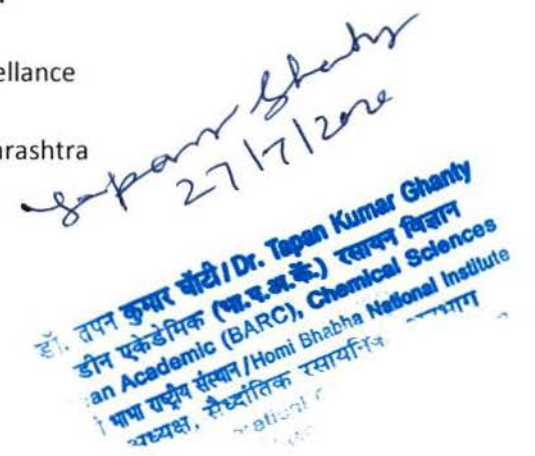 ellance
arashtra
Tapan Ghanty
27/7/2020
डॉ. तपन कुमार घाँटी / Dr. Tapan Kumar Ghanty
डीन एकेडेमिक (भा.प.अ.कें.) रसायन विज्ञान
an Academic (BARC), Chemical Sciences
भाभा राष्ट्रीय संस्थान / Homi Bhabha National Institute
अध्यक्ष, सैध्दांतिक रसायनिक